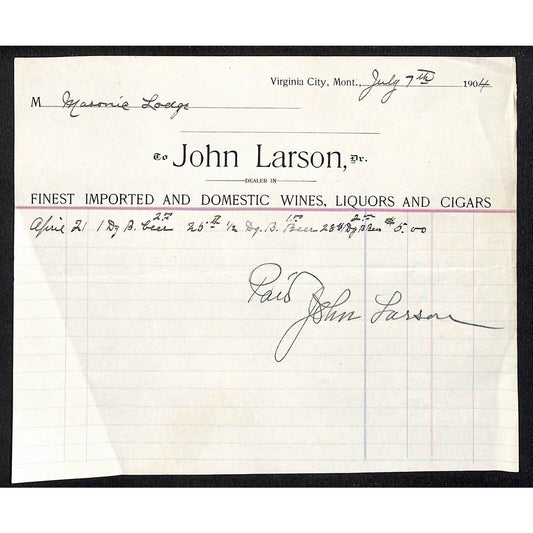 Virginia City, Mont., July 7th 1904
M Masonic Lodge
To John Larson, Dr.
DEALER IN
FINEST IMPORTED AND DOMESTIC WINES, LIQUORS AND CIGARS
April 21 1 Dz B. Beer 2.00 25th 1/2 Dz. B. Beer 1.00 28th 1 Dz B Beer 2.00 $5.00
Paid
John Larson